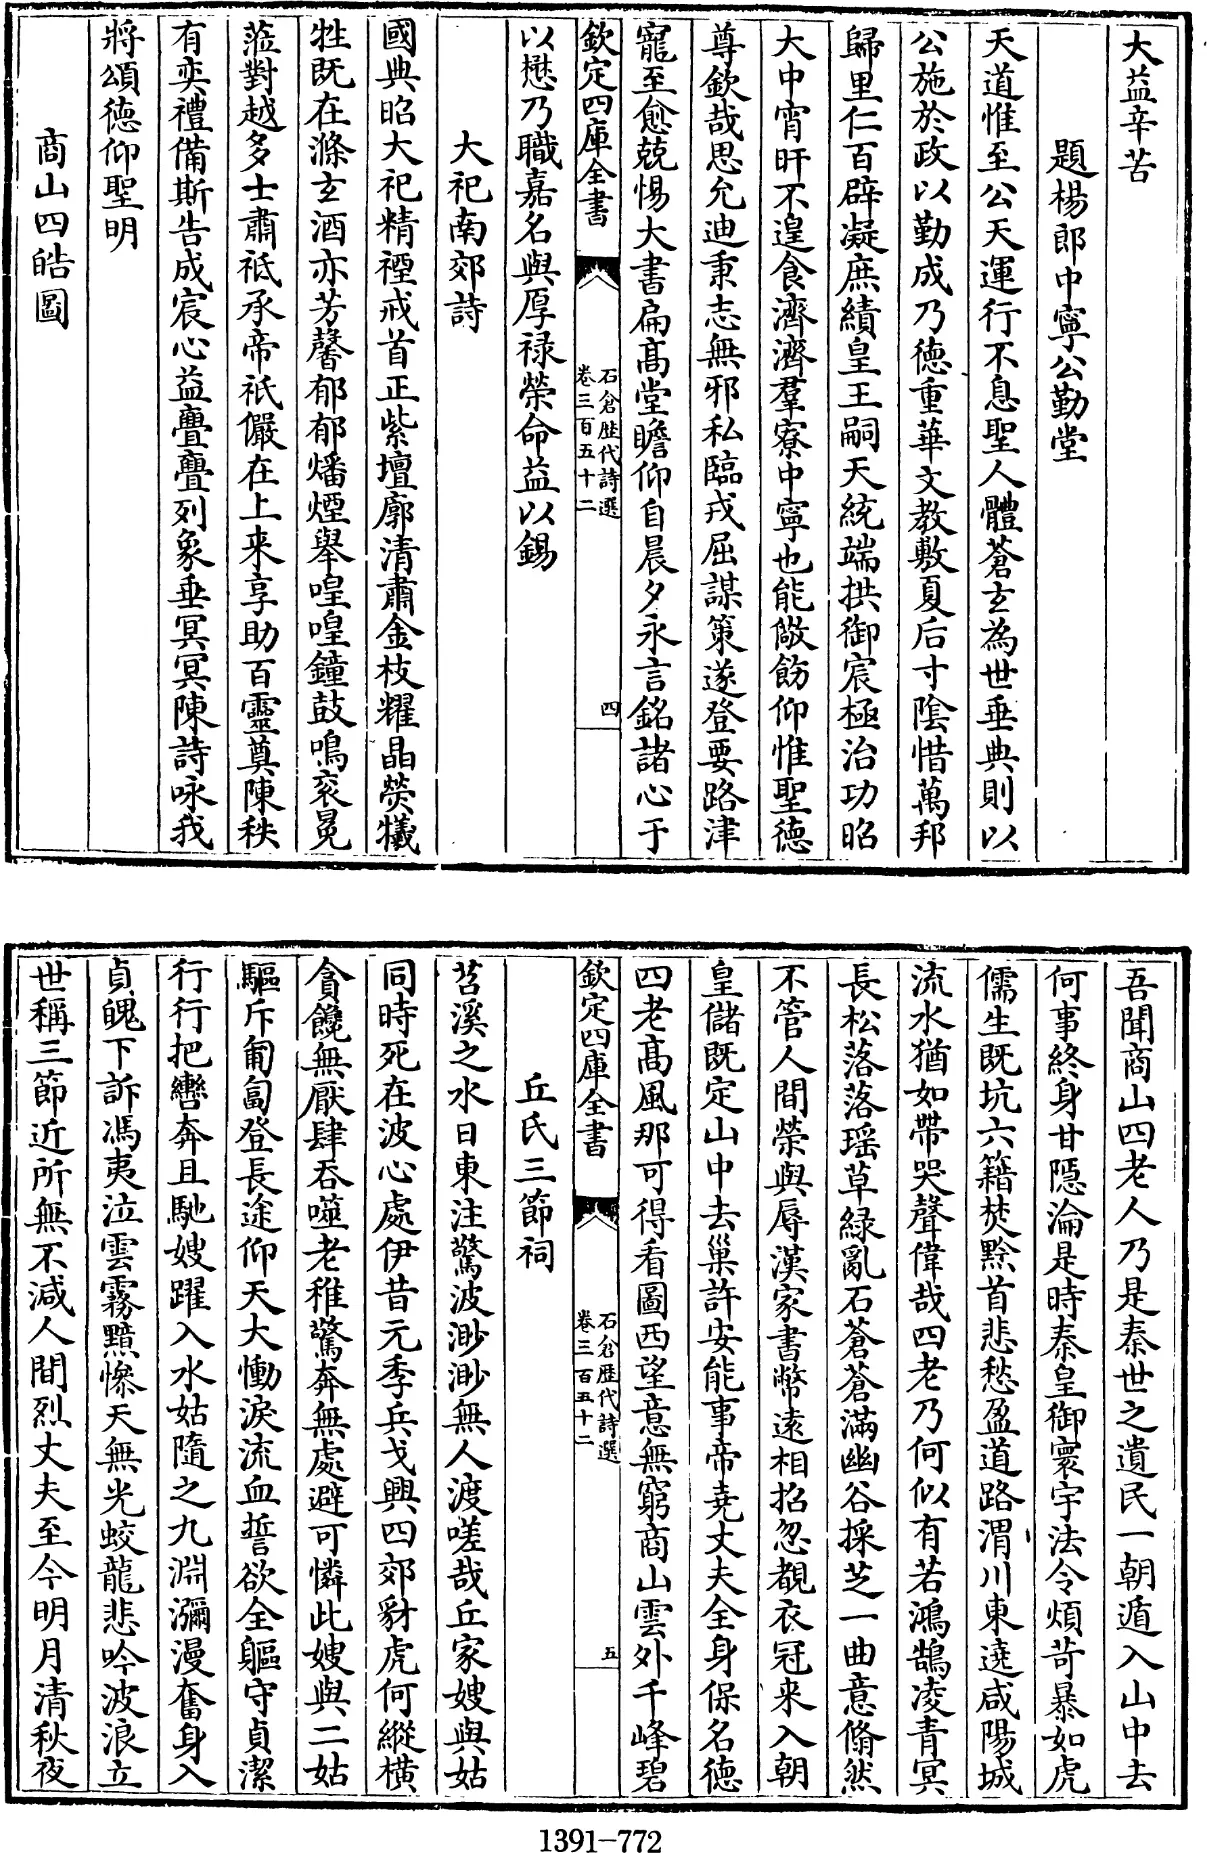 大益辛苦
題楊郎中寧公勤堂
天道惟至公天運行不息聖人體蒼玄為世垂典則以
公施於政以勤成乃徳重華文教敷夏后寸陰惜萬邦
歸里仁百辟凝庶績皇王嗣天統端拱御宸極治功昭
大中宵旰不遑食濟濟羣寮中寧也能儆飭仰惟聖徳
尊欽哉思允迪秉志無邪私臨戎屈謀策遂登要路津
寵至愈兢惕大書扁髙堂瞻仰自晨夕永言銘諸心于
欽定四庫全書
石倉歴代詩選
卷三百五十二
四
以懋乃職嘉名與厚禄榮命益以錫
大祀南郊詩
國典昭大祀精禋戒首正紫壇廓清肅金枝耀晶熒犧
牲既在滌玄酒亦芳馨郁郁燔煙舉喤喤鐘鼓鳴衮冕
蒞對越多士肅祗承帝祇儼在上来享助百靈奠陳秩
有奕禮備斯告成宸心益亹亹列象垂冥冥陳詩咏我
將頌徳仰聖明
商山四皓圖
吾聞商山四老人乃是秦世之遺民一朝遁入山中去
何事終身甘隠淪是時秦皇御寰宇法令煩苛暴如虎
儒生既坑六籍焚黔首悲愁盈道路渭川東遶咸陽城
流水猶如帶哭聲偉哉四老乃何似有若鴻鵠凌青冥
長松落落瑶草緑亂石蒼蒼滿幽谷採芝一曲意翛然
不管人間榮與辱漢家書幣逺相招忽覩衣冠来入朝
皇儲既定山中去巢許安能事帝堯丈夫全身保名徳
四老髙風那可得看圖西望意無窮商山雲外千峰碧
欽定四庫全書
石倉歴代詩選
卷三百五十二
五
丘氏三節祠
苕溪之水日東注驚波渺渺無人渡嗟哉丘家嫂與姑
同時死在波心處伊昔元季兵戈興四郊豺虎何縱横
貪饞無厭肆吞噬老稚驚奔無處避可憐此嫂與二姑
驅斥匍匐登長途仰天大慟淚流血誓欲全軀守貞潔
行行把轡奔且馳嫂躍入水姑隨之九淵瀰漫奮身入
貞魄下訴馮夷泣雲霧黯慘天無光蛟龍悲吟波浪立
世稱三節近所無不減人間烈丈夫至今明月清秋夜
1391-772